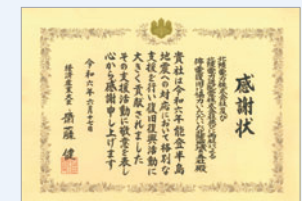 感謝状
貴社は令和六年能登半島
地震への対応において格別な
支援を行い復旧復興活動に
大きく貢献されました
その支援活動に敬意を表し
心から感謝申し上げます
令和六年六月十七日
経済産業大臣 齋藤 健